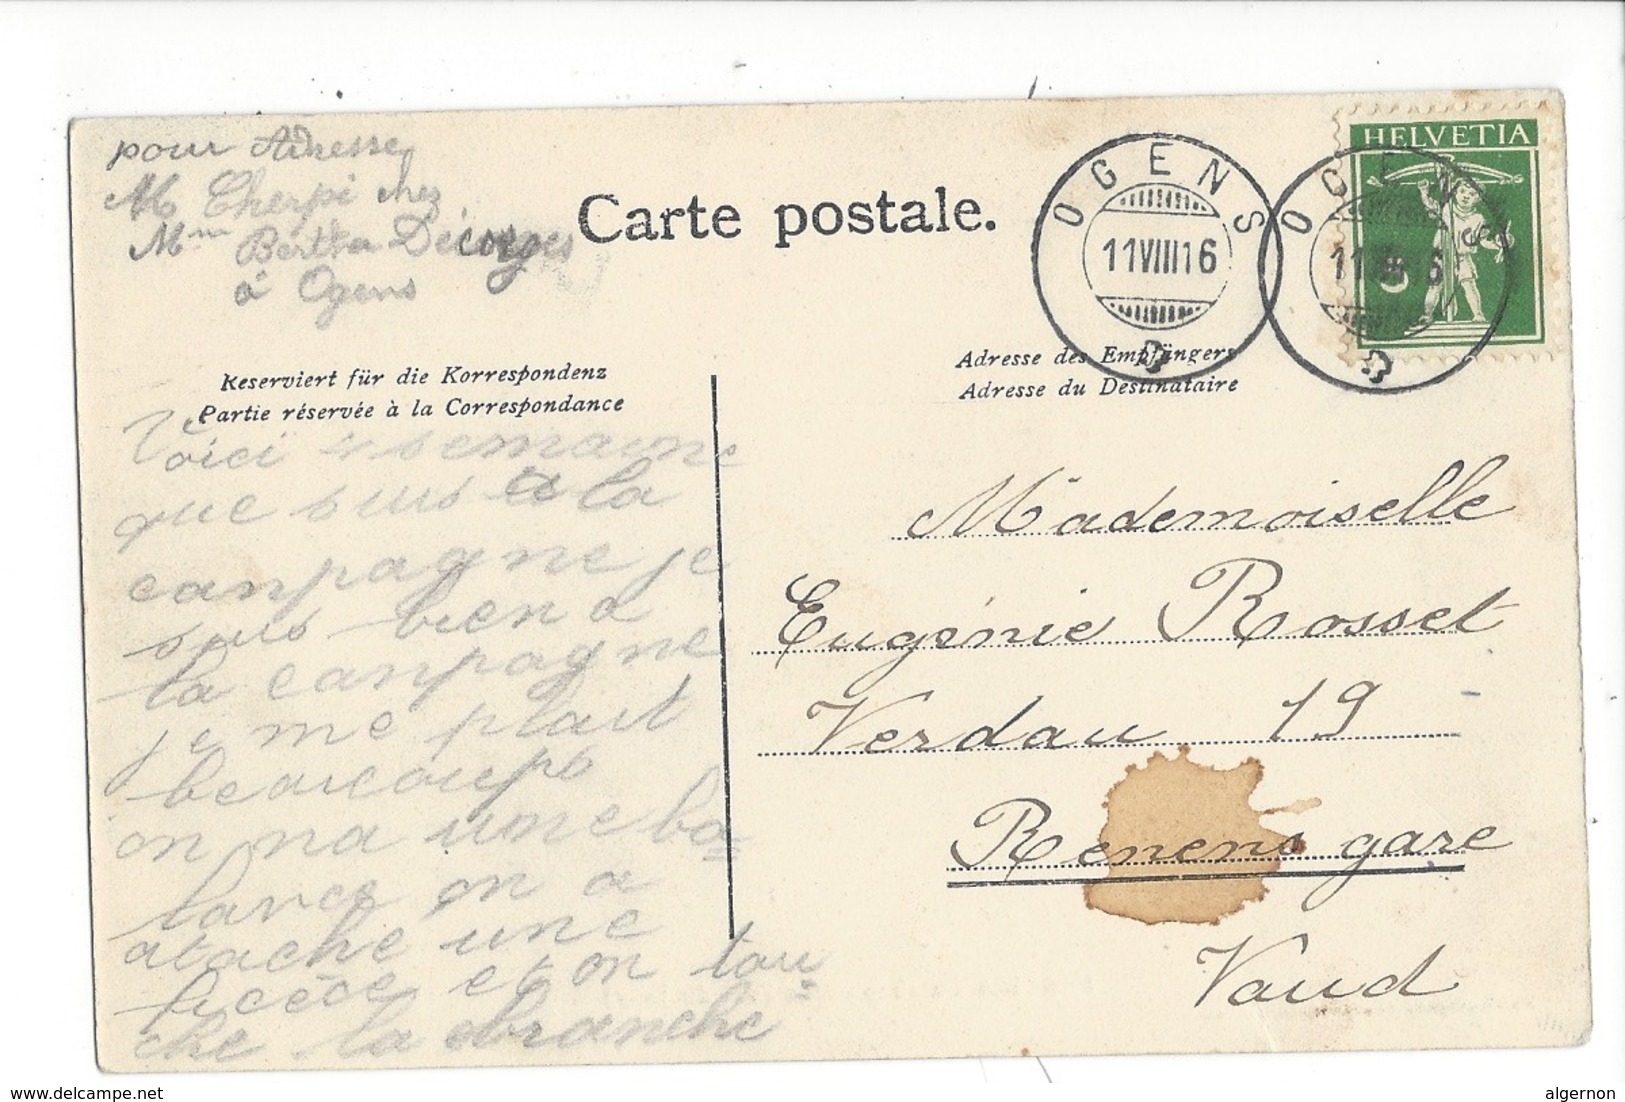 pour Adresse
M Cherpi chez
Mme Bertha Décorges
à Ogens
Carte postale.
OGENS
11VIII16
OGENS
HELVETIA
5
Reserviert für die Korrespondenz
Partie réservée à la Correspondance
Adresse des Empfängers
Adresse du Destinataire
Voici 4 semaine
que suis a la
canpagne je
suis bien a
la canpagne
je me plait
beaucoup
on na une ba=
lance on a
atache une
ficéce et on tou=
che la branche
Mademoiselle
Eugénie Rosset
Verdau 19
Renens gare
Vaud
www.delcampe.net
algernon